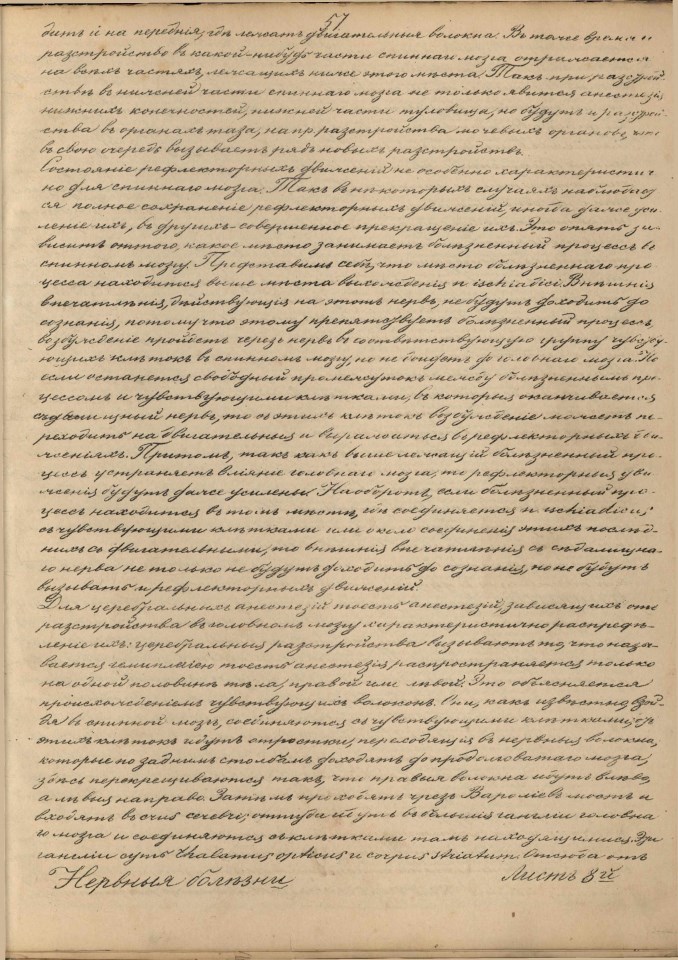 57
дить и на переднія, гдѣ лежатъ двигательныя волокна. Въ тоже время и
разстройство въ какой-нибудь части спиннаго мозга отражается
на всѣхъ частяхъ, лежащихъ ниже этого мѣста. Такъ при разстрой-
ствѣ въ нижней части спиннаго мозга не только явится анестезія
нижнихъ конечностей, нижней части туловища, но будутъ и разстрой-
ства въ органахъ таза, напр. разстройства мочевыхъ органовъ, что
въ свою очередь вызываетъ рядъ новыхъ разстройствъ.
Состояніе рефлекторныхъ движеній не особенно характеристич
но для спиннаго мозга. Такъ въ нѣкоторыхъ случаяхъ наблюдает
ся полное сохраненіе рефлекторныхъ движеній, иногда даже уси-
леніе ихъ, въ другихъ - совершенное прекращеніе ихъ. Это опять за-
виситъ оттого, какое мѣсто занимаетъ болѣзненный процессъ въ
спинномъ мозгу. Представимъ себѣ, что мѣсто болѣзненнаго про
цесса находится выше мѣста выхожденія n ischiadici. Внѣшнія
впечатлѣнія, дѣйствующія на этотъ нервъ, не будутъ доходить до
сознанія, потому что этому препятствуетъ болѣзненный процессъ,
возбужденіе пройдетъ черезъ нервъ въ соотвѣтствующую группу чувству-
ющихъ клѣтокъ въ спинномъ мозгу, но не дойдетъ до головнаго мозга. Но
если останется свободный промежутокъ между болѣзненнымъ про-
цессомъ и чувствующими клѣтками, въ которыя оканчивается
сѣдалищный нервъ, то съ этихъ клѣтокъ возбужденіе можетъ пе-
реходить на двигательныя и выражаться въ рефлекторныхъ дви-
женіяхъ. Притомъ, такъ какъ выше лежащій болѣзненный про-
цессъ устраняетъ вліяніе головнаго мозга, то рефлекторныя дви
женія будутъ даже усилены. Наоборотъ, если болѣзненный про-
цессъ находится въ томъ мѣстѣ, гдѣ соединяется n ischiadicus
съ чувствующими клѣтками или около соединенія этихъ послѣд-
нихъ съ двигательными, то внѣшнія впечатлѣнія съ сѣдалищна-
го нерва не только не будутъ доходить до сознанія, но не будутъ
вызывать и рефлекторныхъ движеній.
Для церебральныхъ анестезій тоесть анестезій, зависящихъ отъ
разстройства въ головномъ мозгу характеристично распредѣ-
леніе ихъ: церебральныя разстройства вызываютъ то, что назы-
вается гемиплегіею тоесть анестезія распространяется только
на одной половинѣ тѣла, правой или лѣвой. Это объясняется
происхожденіемъ чувствующихъ волоконъ. Они, какъ извѣстно, вхо-
дя въ спинной мозгъ, соединяются съ чувствующими клѣтками, отъ
этихъ клѣтокъ идутъ отростки, переходящіе въ нервныя волокна,
которые по заднимъ столбамъ доходятъ до продолговатаго мозга,
здѣсь перекрещиваются такъ, что правыя волокна идутъ влѣво,
а лѣвыя направо. Затѣмъ проходятъ чрезъ Вароліевъ мостъ и
входятъ въ оттуда идутъ въ гангліи головна
го мозга и соединяются съ клѣтками тамъ находящимися. Эти
гангліи суть thalamus opticus и corpus striatum. Отсюда отъ
Нервныя болѣзни
Листъ 8й